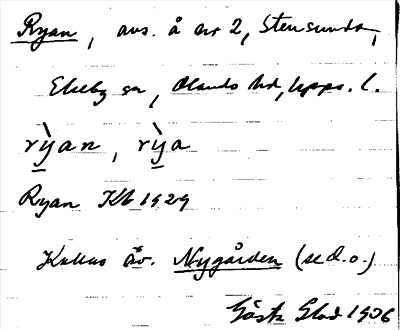 Ryan, avs. å nr 2, Stensunda,
Ekeby sn, Olands hd, Upps. l.
rỳan, rỳa
Ryan Kb 1929
Kallas äv. Nygården (se d.o.)
Gösta 1936